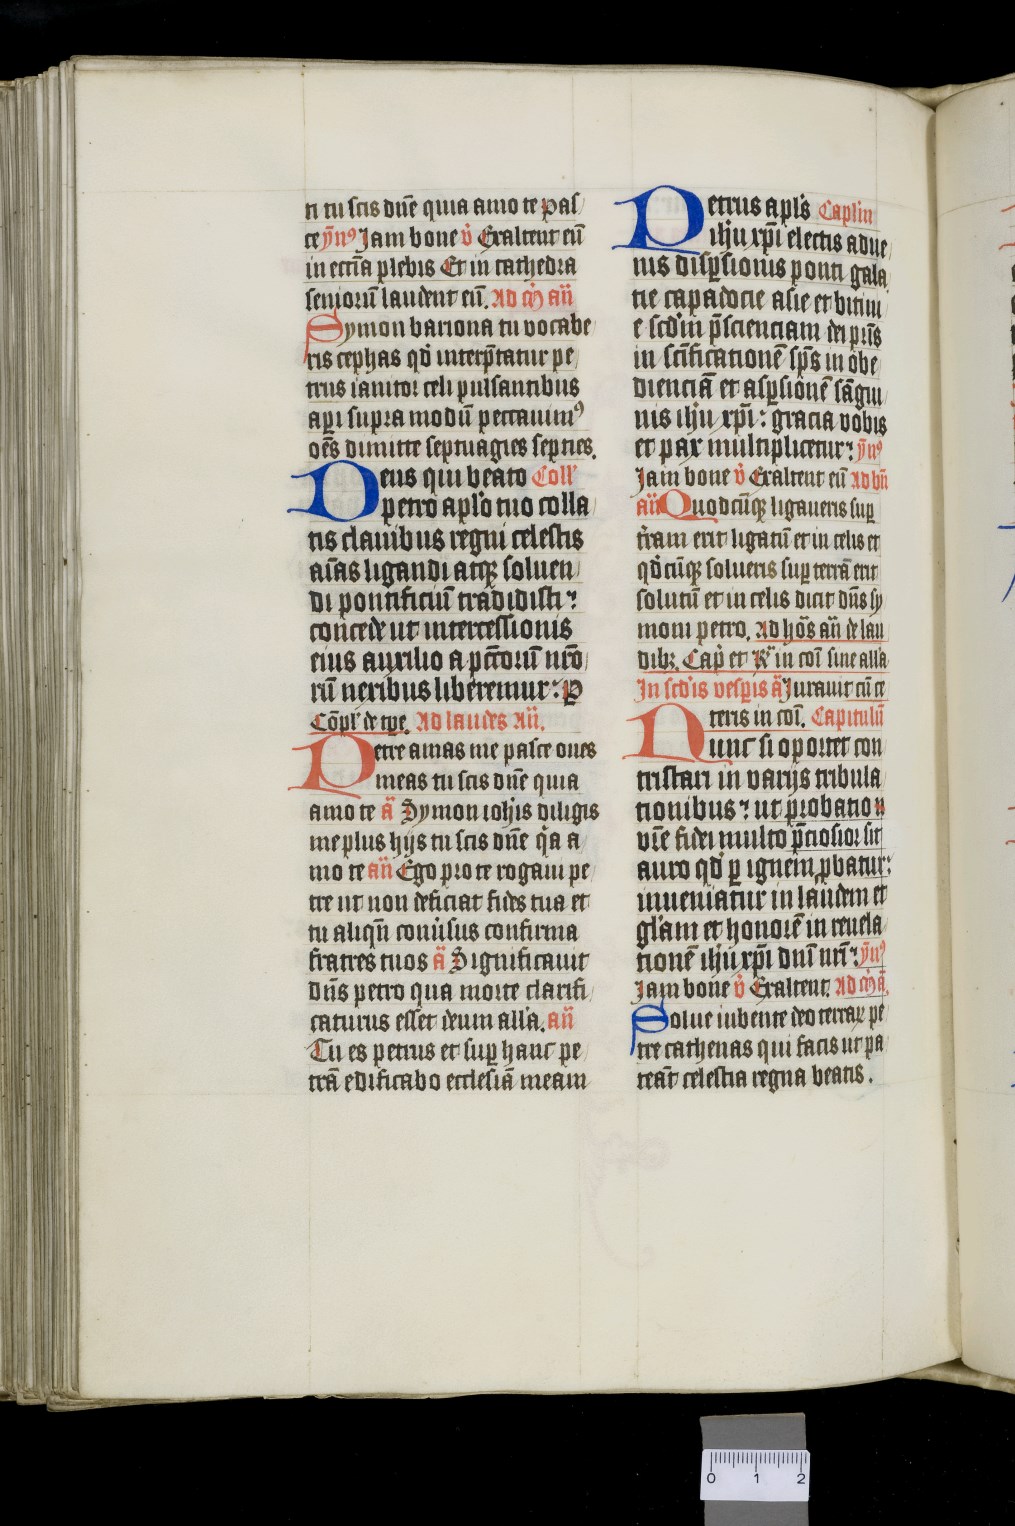 ti tu scis dn̄e quia amo te pas
ce ẏn⁹ Jam bone v̓ Exaltent eū
in ecc̄ia plebis Et in cathedra
seniorū laudent eū. Ad m̄ an̄
Symon bariona tu vocabe
ris cephas qđ interp̄tatur pe
trus ianitor celi pulsantibus
aperi supra modū peccauim⁹
om̄s dimitte septuagies septies.
Deus qui beato Coll'
petro aplo tuo colla
tis clauibus regni celestis
aīas ligandi atqꝫ soluen
di pontificiū tradidisti:
concede ut intercessionis
eius auxilio a pc̄torū nr̄o
rū nexibus liberemur: P
Cōpl' de tp̄e. Ad laudes An̄.
Petre amas me pasce oues
meas tu scis dn̄e quia
amo te ā Symon ioh̄is diligis
me plus hijs tu scis dn̄e qͣa a
mo te an̄ Ego pro te rogaui pe
tre ut non deficiat fides tua et
tu aliqn̄ conūsus confirma
fratres tuos ā Significauit
dn̄s petro qua morte clarifi
caturus esset deum alla. an̄
Tu es petrus et suꝑ hanc pe
trā edificabo ecclesiā meam
Petrus apl's Caplm
ihū xp̄i electis adue
nis disꝑsionis ponti gala
tie capadocie asie et bitini
e scd̄m p̄scienciam dei pr̄is
in sc̄ificationē sp̄s in obe
dienciā et asꝑsionē sāgui
nis ihū xp̄i: gracia vobis
et pax multiplicetur: ẏn⁹
Jam bone v̓ Exaltent eū Ad bn̄
an̄ Quodcūqꝫ ligaueris suꝑ
t̄ram erit ligatū et in celis et
qđcūqꝫ solueris suꝑ terrā erit
solutū et in celis dicit dn̄s sy
moni petro. Ad hōs an̄ de lau
dibꝫ. Cap̄ et R̄ in cōi sine alla
In scd̄is vesꝑis ā Jurauit cū ce
teris in cōi. Capitulū
Nunc si oportet con
tristari in varijs tribula
tionibus: ut probatio n
vr̄e fidei multo p̄ciosior sit
auro qđ ꝑ ignem ꝓbatur:
inueniatur in laudem et
gl'am et honorē in reuela
tionē ihū xp̄i dn̄i nr̄i: ẏn⁹
Jam bone v̓ Exaltent. Ad m̄ ā.
Solue iubente deo terraꝝ pe
tre cathenas qui facis ut pa
teāt celestia regna beatis.
0 1 2